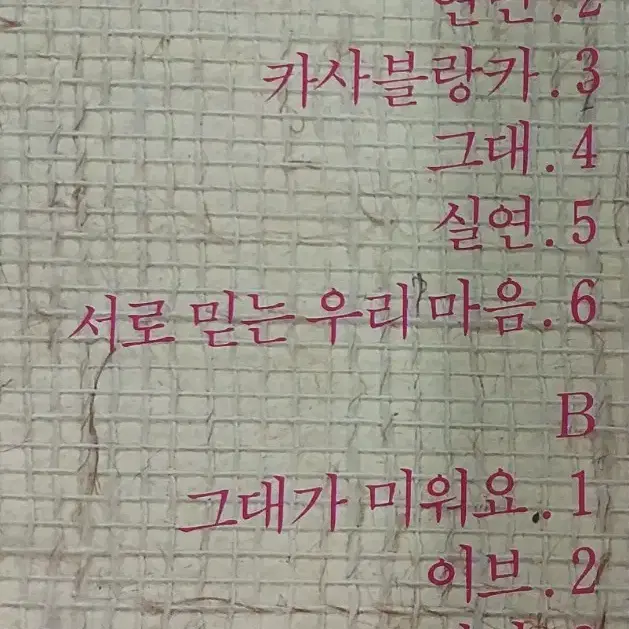 카사블랑카.3
그대.4
실연.5
서로 믿는 우리 마음.6
B
그대가 미워요.1
이브.2